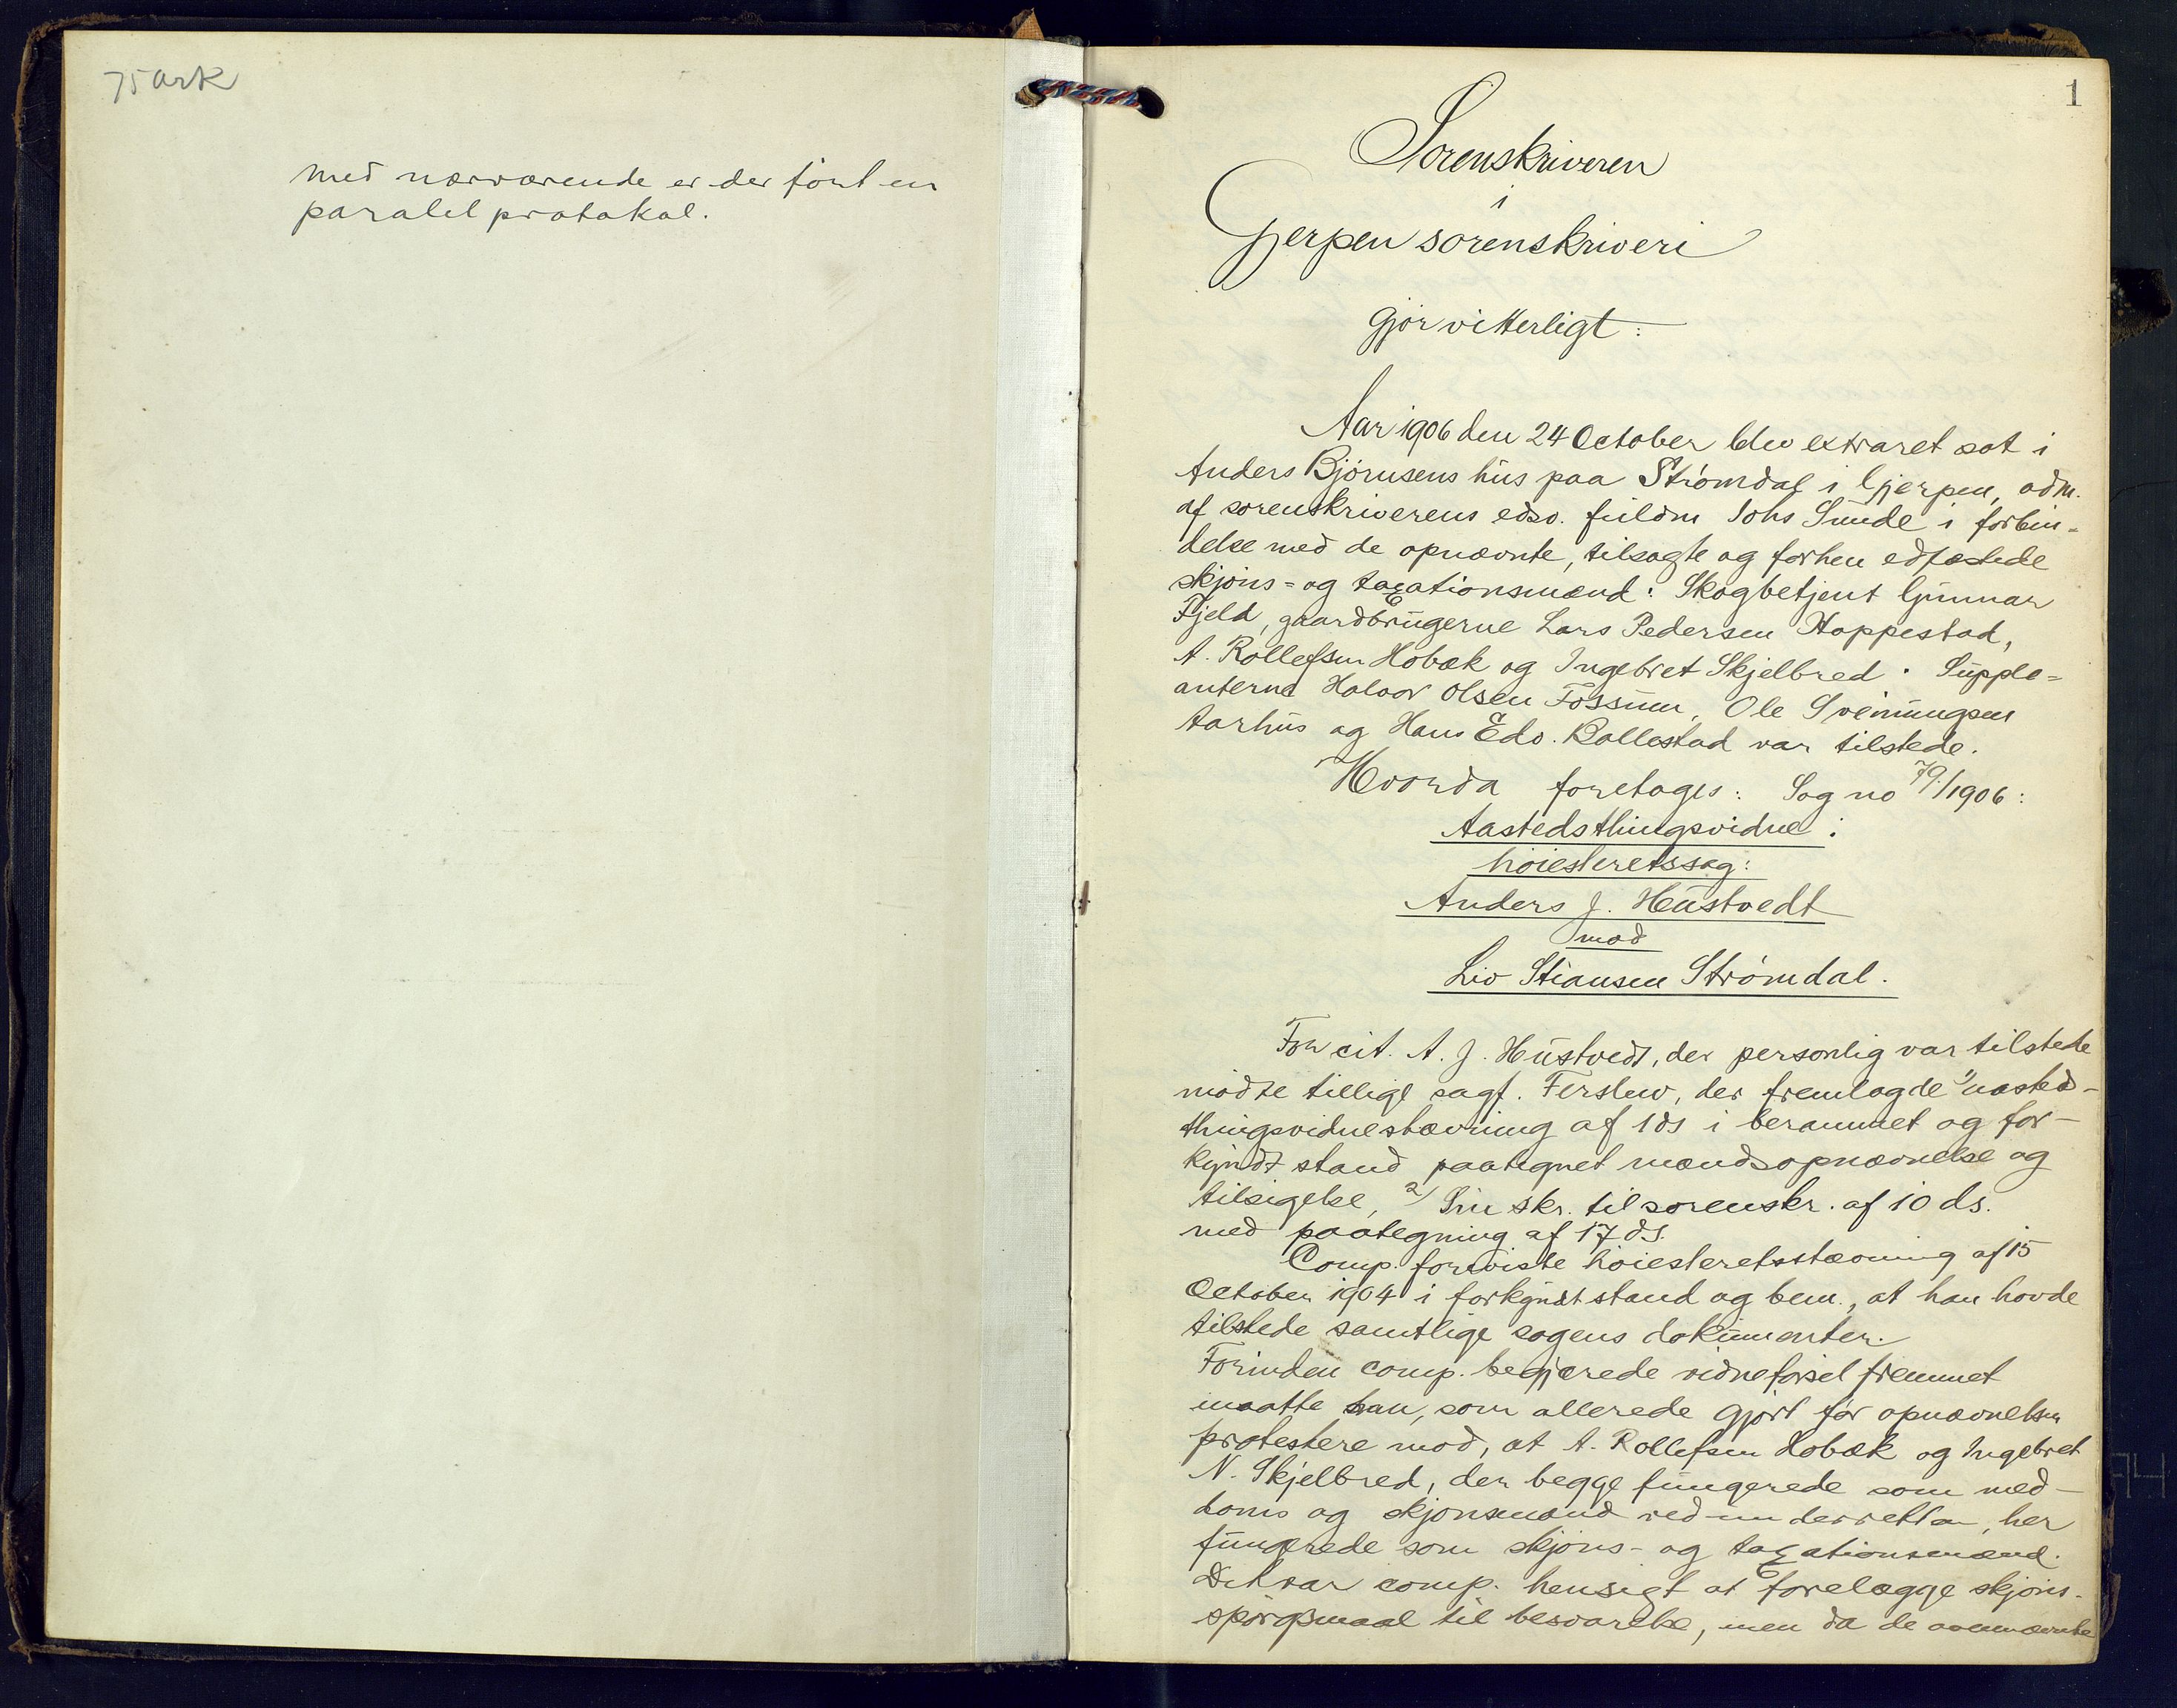 75 ark
med nærværende er der ført en
paralel protokol.
1
Sorenskriveren
i
Gjerpen sorenskriveri
gjør vitterligt:
Aar 1906 den 24 October blev extraret sat i
Anders Bjørnsens hus paa Strømdal i Gjerpen, adm.
af sorenskriverens edsv. fuldm Johs Sunde i forbin-
delse med de opnævnte, tilsagte og forhen edfæstede
skjøns- og taxationsmænd: Skogbetjent Gunnar
Fjeld, gaardbrugerne Lars Pedersen Hoppestad,
A. Rollefsen Hobæk og Ingebret Skjelbred. Supple-
anterne Halvor Olsen Fossum, Ole Sveinungsen
Aarhus og Hans Edv. Bollestad var tilstede.
Hvorda foretoges: Sag no 79/1906:
Aastedsthingsvidne i
høiesteretssag:
Anders J. Hustvedt
mod
Liv Stiansen Strømdal.
For cit. A. J. Hustvedt, der personlig var tilstede
mødte tillige sagf. Ferslew, der fremlagde 1/ aasted-
thingsvidnestævning af 1 ds i berammet og for-
kyndt stand paategnet mændsopnævnelse og
tilsigelse, 2/ Sin skr. til sorenskr. af 10 ds.
med paategning af 17 ds.
Comp. foreviste høiesteretsstævning af 15
October 1904 i forkyndt stand og bem., at han havde
tilstede samtlige sagens dokumenter.
Forinden comp. begjærede vidneførsel fremmet
maatte han, som allerede gjort før opnævnelsen
protestere mod, at A. Rollefsen Hobæk og Ingebret
N. Skjelbred, der begge fungerede som med-
doms og skjønsmænd ved underretten, her
fungerede som skjøns- og taxationsmænd.
Det var comp. hensigt at forelægge skjøns-
spørgsmaal til besvarelse, men da de ovennævnte